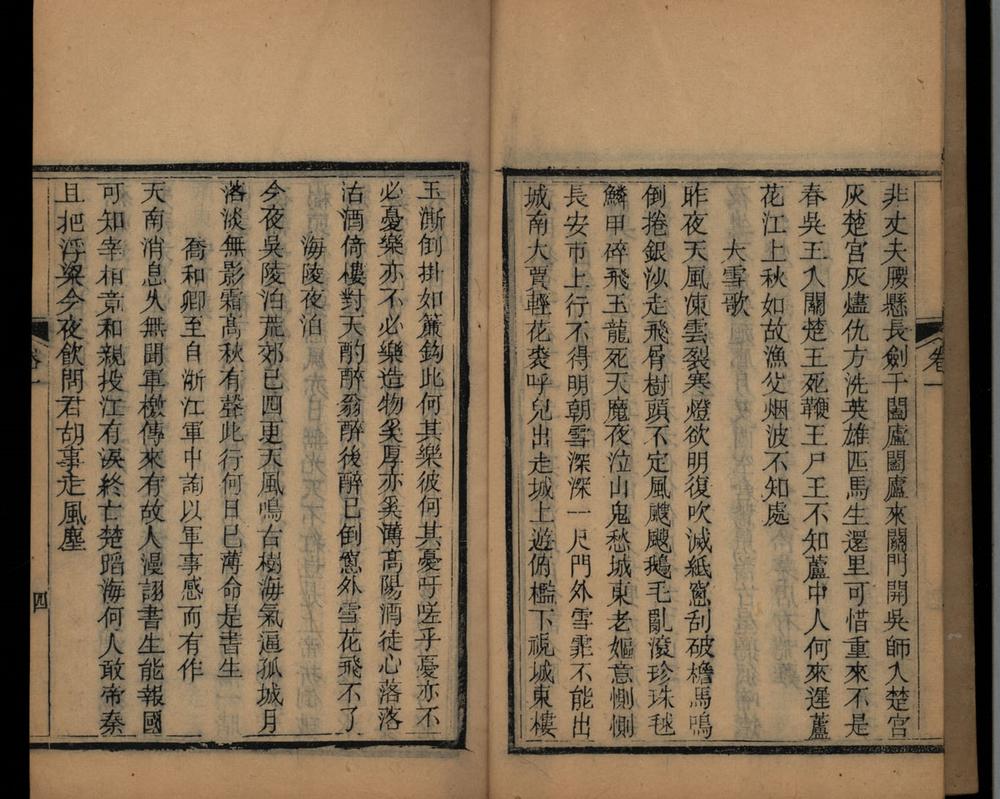 非丈夫腰懸長劍干闔廬闔廬來闢門開吳師入楚宮
灰楚宮灰燼仇方洗英雄匹馬生還里可惜重來不是
春吳王入關楚王死鞭王尸王不知蘆中人何來遲蘆
花江上秋如故漁父烟波不知處
大雪歌
昨夜天風凍雲裂寒燈欲明復吹滅紙窻刮破檐馬鳴
倒捲銀沙走飛骨樹頭不定風颼颼鵝毛亂滾珍珠毬
鱗甲碎飛玉龍死天魔夜泣山鬼愁城東老嫗意惻惻
長安市上行不得明朝雪深深一尺門外雪霏不能出
城南大賈輕花裘呼兒出走城上遊俯檻下視城東樓
卷一
玉澌倒掛如簾鈎此何其樂彼何其憂吁嗟乎憂亦不
必憂樂亦不必樂造物奚厚亦奚薄高陽酒徒心落落
沽酒倚樓對天酌醉翁醉後醉已倒窻外雪花飛不了
海陵夜泊
今夜吳陵泊荒郊已四更天風鳴古樹海氣逼孤城月
落淡無影霜高秋有聲此行何日巳薄命是書生
喬和卿至自浙江軍中詢以軍事感而有作
天南消息久無聞軍檄傳來有故人漫詡書生能報國
可知宰相竟和親投江有淚終亡楚蹈海何人敢帝秦
且把浮梁今夜飲問君胡事走風塵
卷一
四